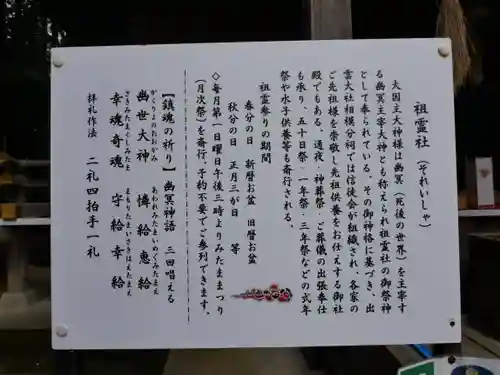 祖霊社（それいしゃ）
大国主大神様は幽冥（死後の世界）を主宰す
る幽冥主宰大神とも称えられ祖霊社の御祭神
として奉られている。その御神格に基づき、出
雲大社相模分祠では信徒会が組織され、各家の
ご先祖様を崇敬し先祖供養をお仕えする御社
殿でもある。通夜・神葬祭・ご葬儀の出張奉仕
も承り、五十日祭・一年祭・三年祭などの式年
祭や水子供養等も斎行される。
祖霊参りの期間
春分の日　新暦お盆　旧暦お盆
秋分の日　正月三が日　等
◇毎月第一日曜日午後三時よりみたままつり
（月次祭）を斎行、予約不要でご参列できます。
【鎮魂の祈り】幽冥神語　三回唱える
かくりよのおおかみ　あわれみたまいめぐみたまえ
幽世大神　憐給恵給
さきみたまくしみたま　まもりたまいさきはえたまえ
幸魂奇魂　守給幸給
拝礼作法　二礼四拍手一礼